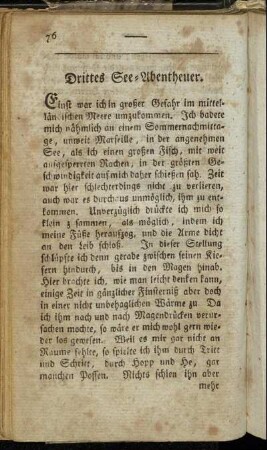 76
Drittes See-Abentheuer.
Einst war ich in großer Gefahr im mittel-
ländischen Meere umzukommen. Ich badete
mich nähmlich an einem Sommernachmitta-
ge, unweit Marseille, in der angenehmen
See, als ich einen großen Fisch, mit weit
aufgesperrten Rachen, in der größten Ge-
schwindigkeit auf mich daher schießen sah. Zeit
war hier schlechterdings nicht zu verlieren,
auch war es durchaus unmöglich, ihm zu ent-
kommen. Unverzüglich drückte ich mich so
klein zusammen, als möglich, indem ich
meine Füße heraufzog, und die Arme dicht
an den Leib schloß. In dieser Stellung
schlüpfte ich denn gerade zwischen seinen Kie-
fern hindurch, bis in den Magen hinab.
Hier brachte ich, wie man leicht denken kann,
einige Zeit in gänzlicher Finsterniß aber doch
in einer nicht unbehaglichen Wärme zu. Da
ich ihm nach und nach Magendrücken verur-
sachen mochte, so wäre er mich wohl gern wie-
der los gewesen. Weil es mir gar nicht an
Raume fehlte, so spielte ich ihm durch Tritt
und Schritt, durch Hopp und He, gar
manchen Possen. Nichts schien ihn aber
mehr